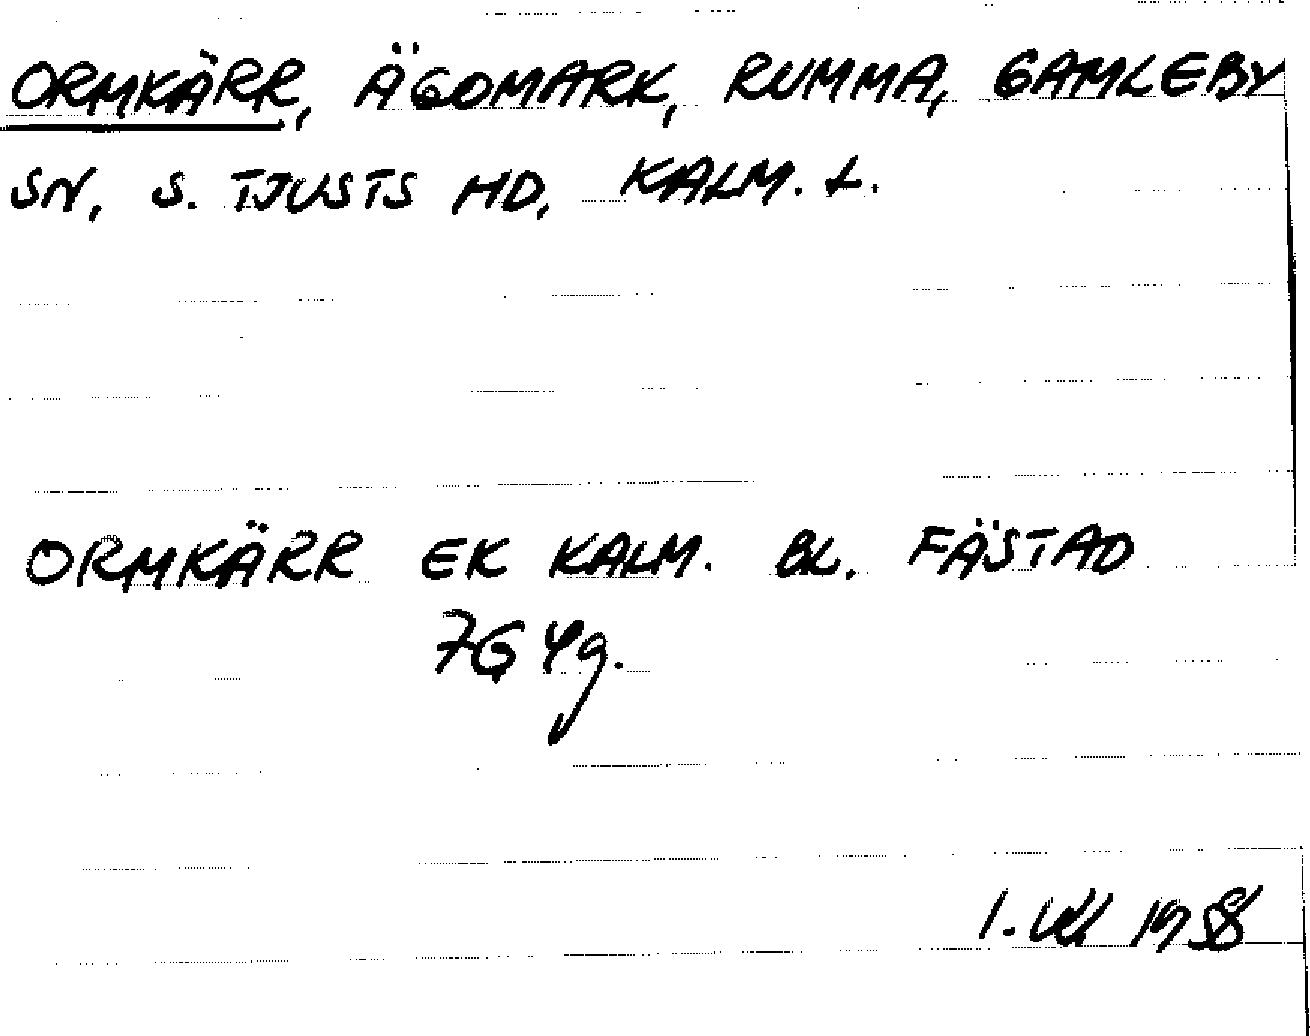 ORMKÄRR, ÄGOMARK, RUMMA, GAMLEBY
SN, S. TJUSTS HD, KALM. L.
ORMKÄRR EK KALM. BL. FÄSTAD
7G 4g.
1. 1958